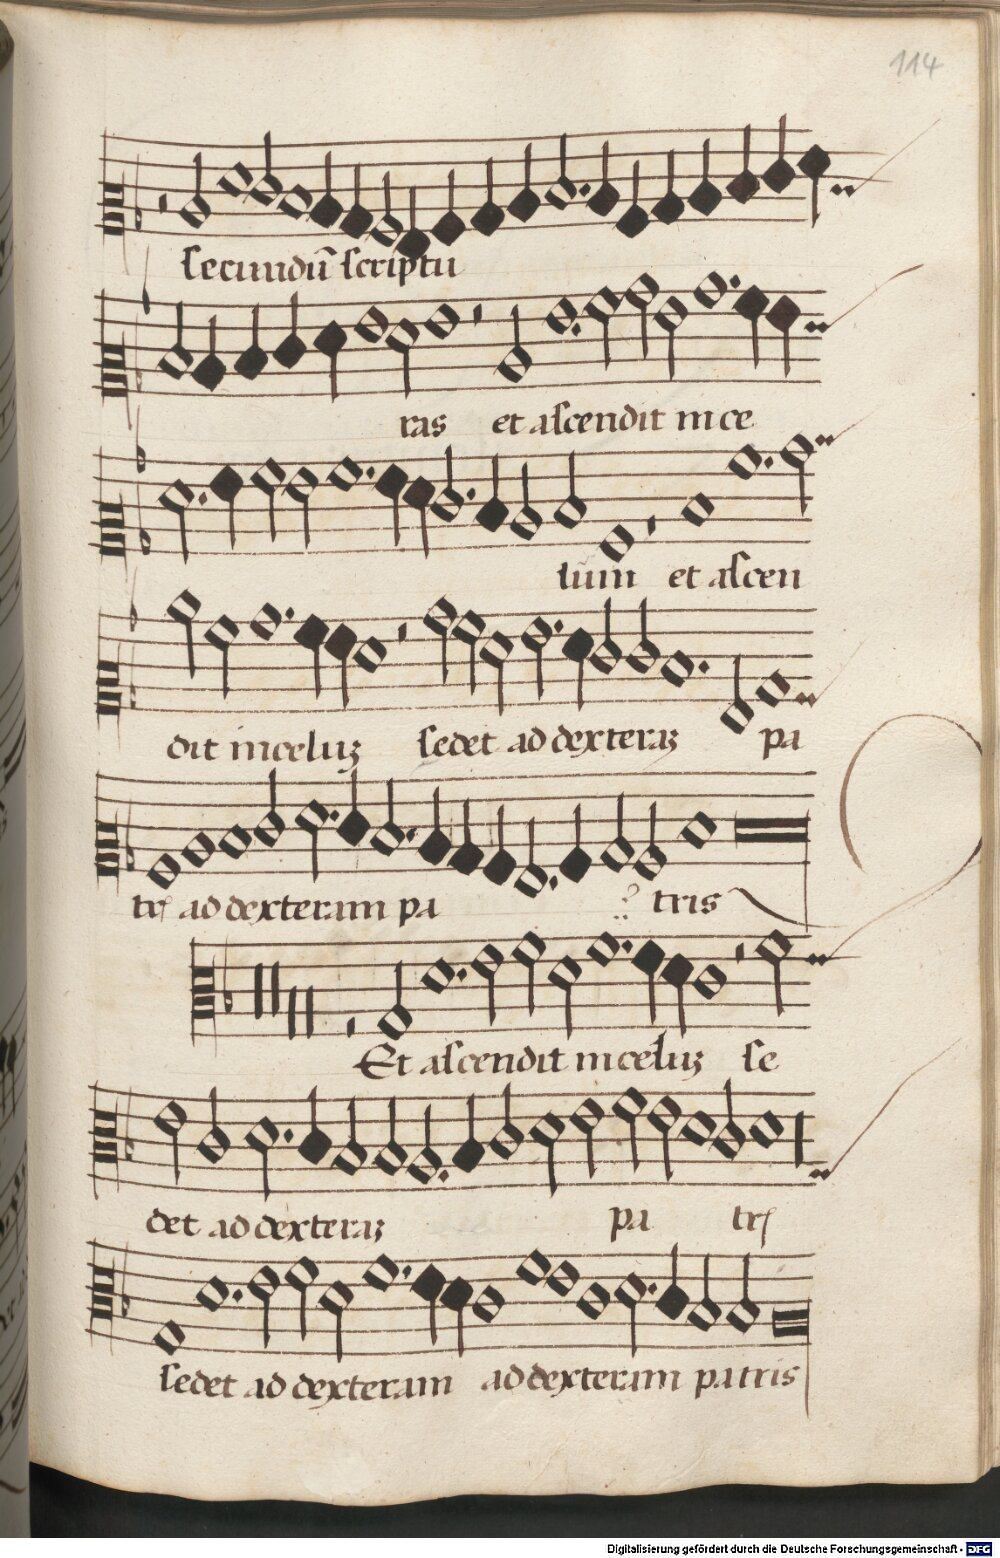 114
secundū scriptu
ras et ascendit in ce
lum et ascen
dit in celuʒ sedet ad dexteraʒ pa
trꝭ ad dexteram pa tris
Et ascendit in celuʒ se
det ad dexteraʒ pa trꝭ
sedet ad dexteram ad dexteram patris
Digitalisierung gefördert durch die Deutsche Forschungsgemeinschaft - DFG